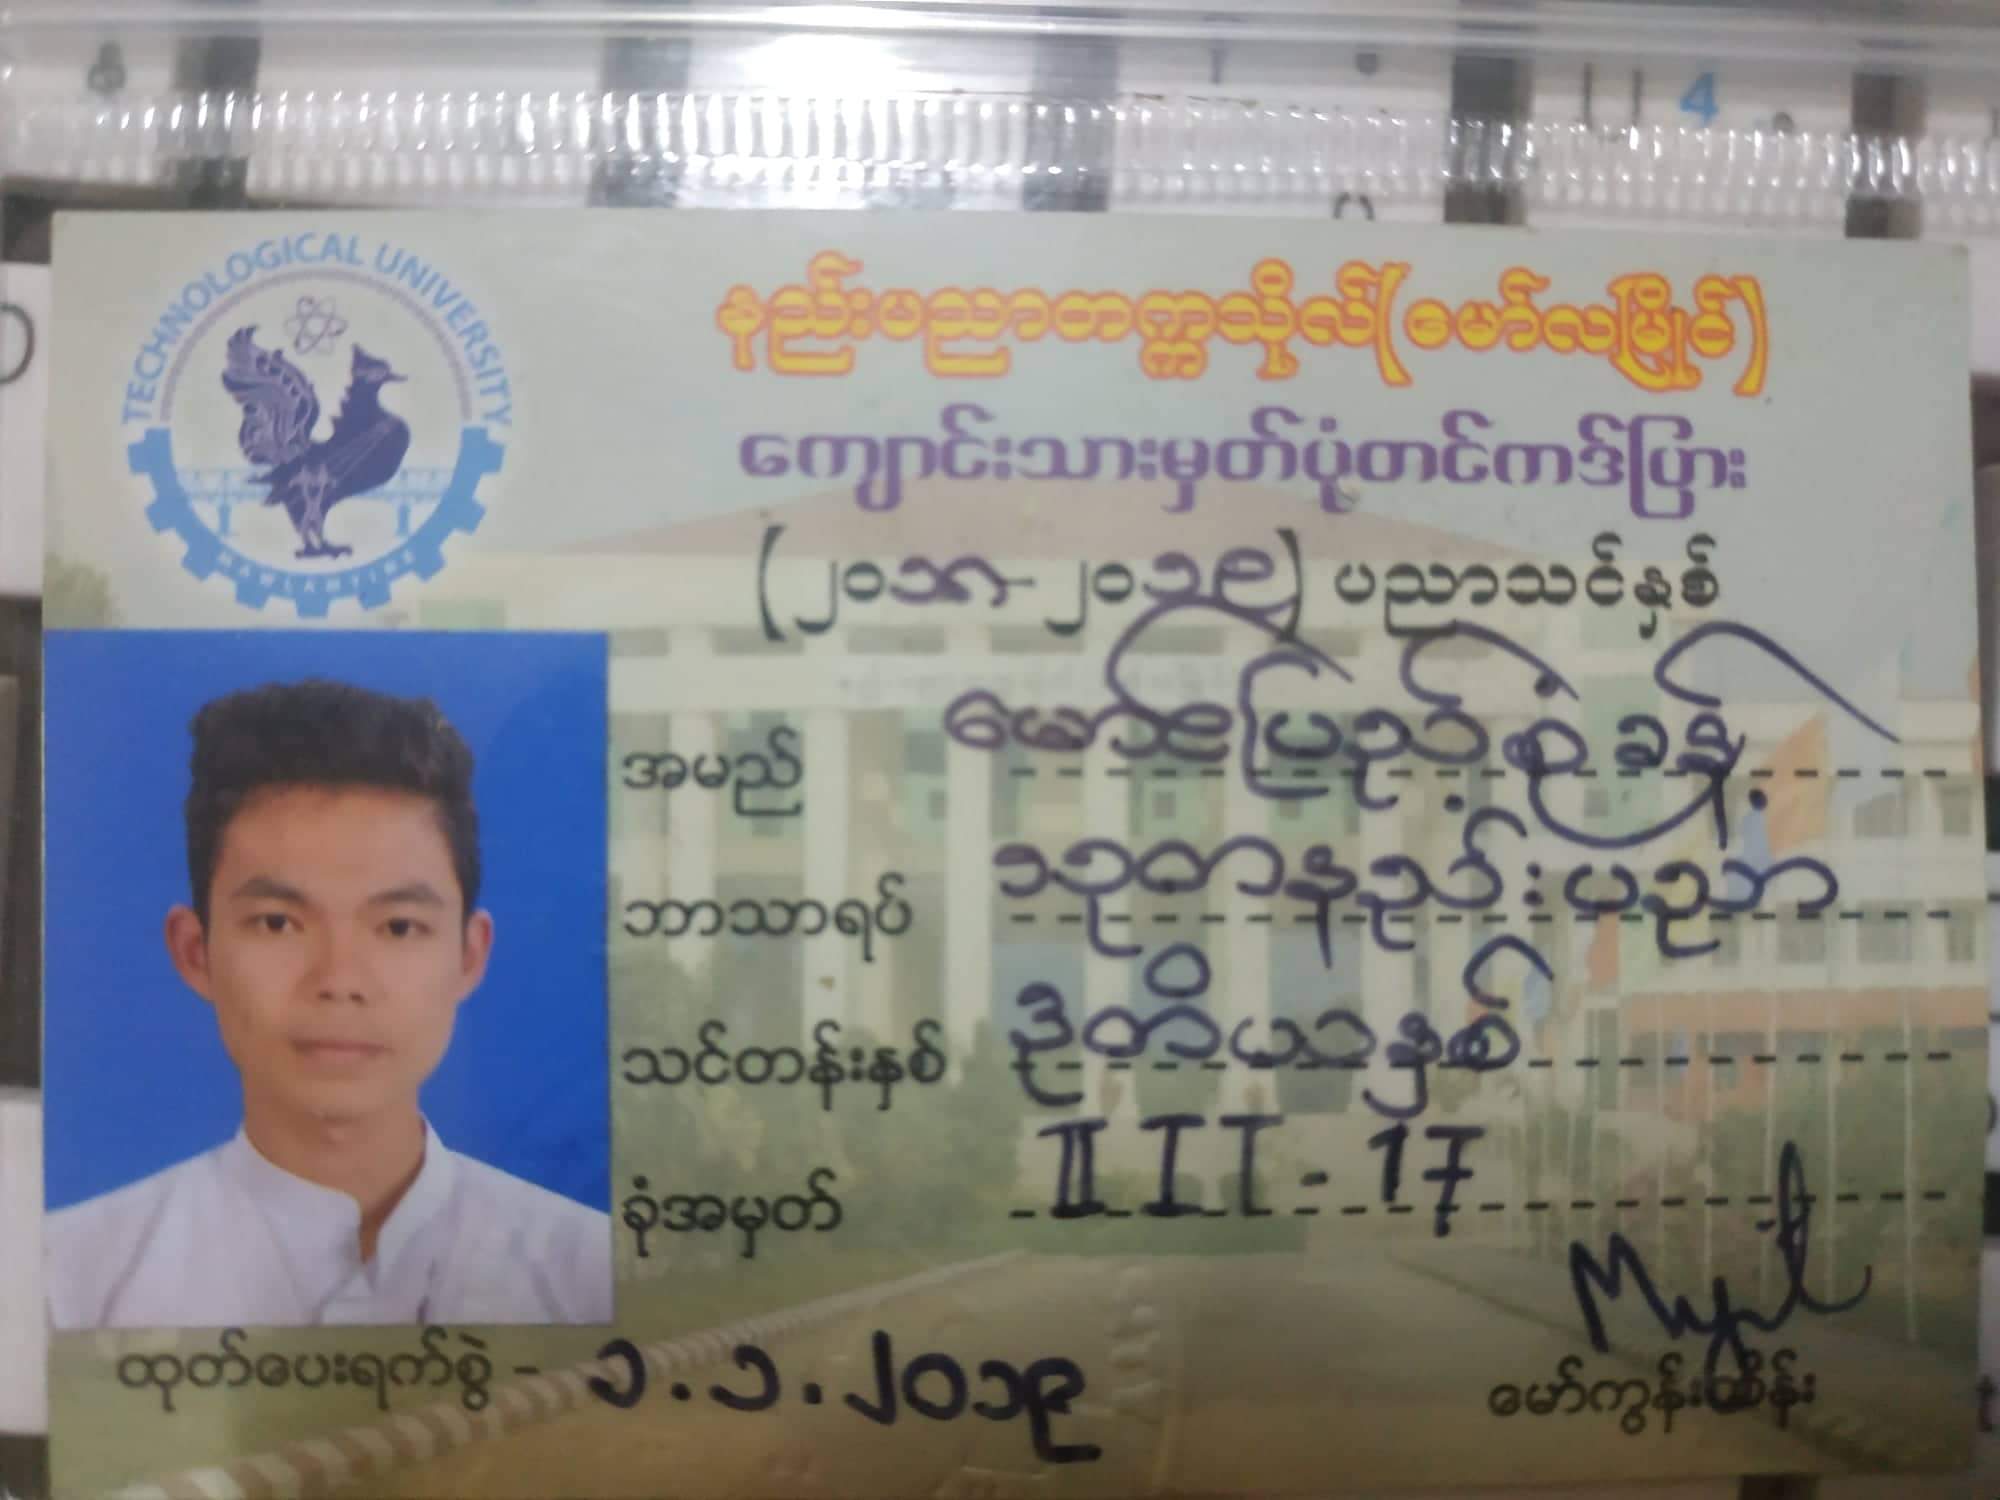 TECHNOLOGICAL UNIVERSITY
MAWLAMYINE
နည်းပညာတက္ကသိုလ်(မော်လမြိုင်)
ကျောင်းသားမှတ်ပုံတင်ကဒ်ပြား
(၂၀၁၈-၂၀၁၉) ပညာသင်နှစ်
အမည် မောင်ပြည့်စုံခန့်
ဘာသာရပ် သုတနည်းပညာ
သင်တန်းနှစ် ဒုတိယနှစ်
ခုံအမှတ် II IT - 17
ထုတ်ပေးရက်စွဲ - ၁.၁.၂၀၁၉
မော်ကွန်းထိန်း